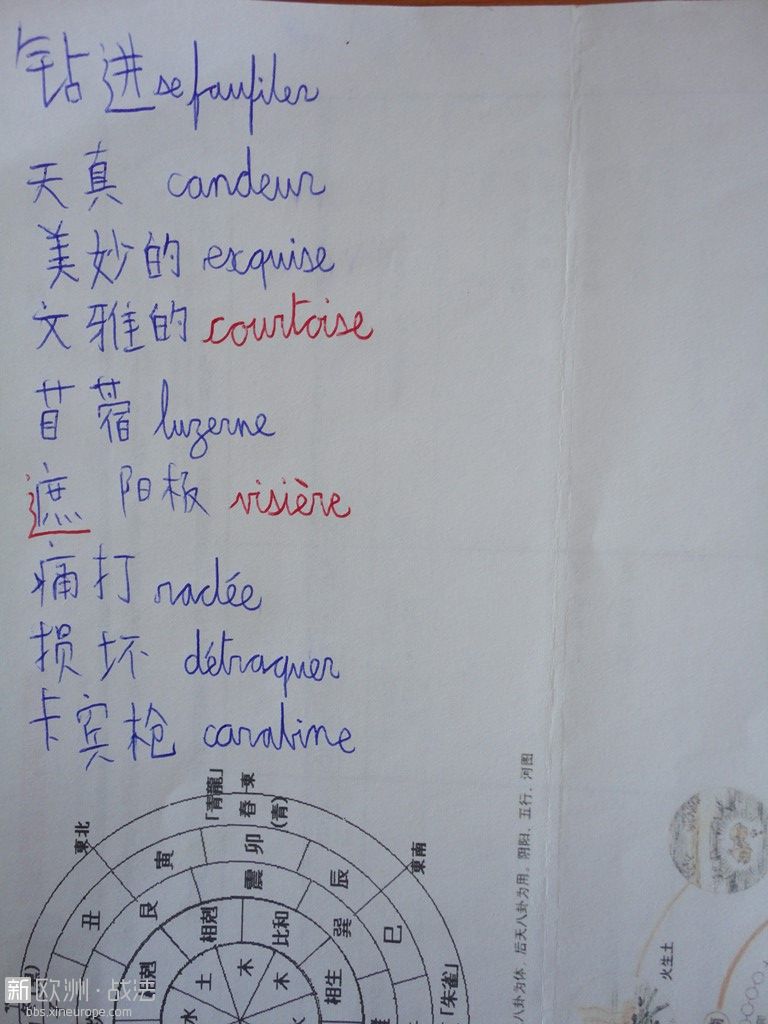 钻进 se faufiler
天真 candeur
美妙的 exquise
文雅的 courtoise
苜蓿 luzerne
遮阳板 visière
痛打 raclée
损坏 détraquer
卡宾枪 carabine
「青龍」
春—東
(青)
東北
東南
寅
卯
辰
丑
艮
震
巽
巳
相剋
比和
相生
土
木
木
水
火
「朱雀」
八卦为体，后天八卦为用。阴阳、五行、河图
火生土
新欧洲·战法
bbs.xineurope.com